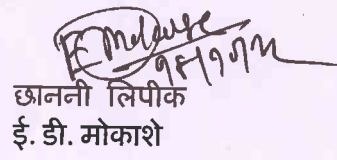 छाननी लिपीक
ई. डी. मोकाशे